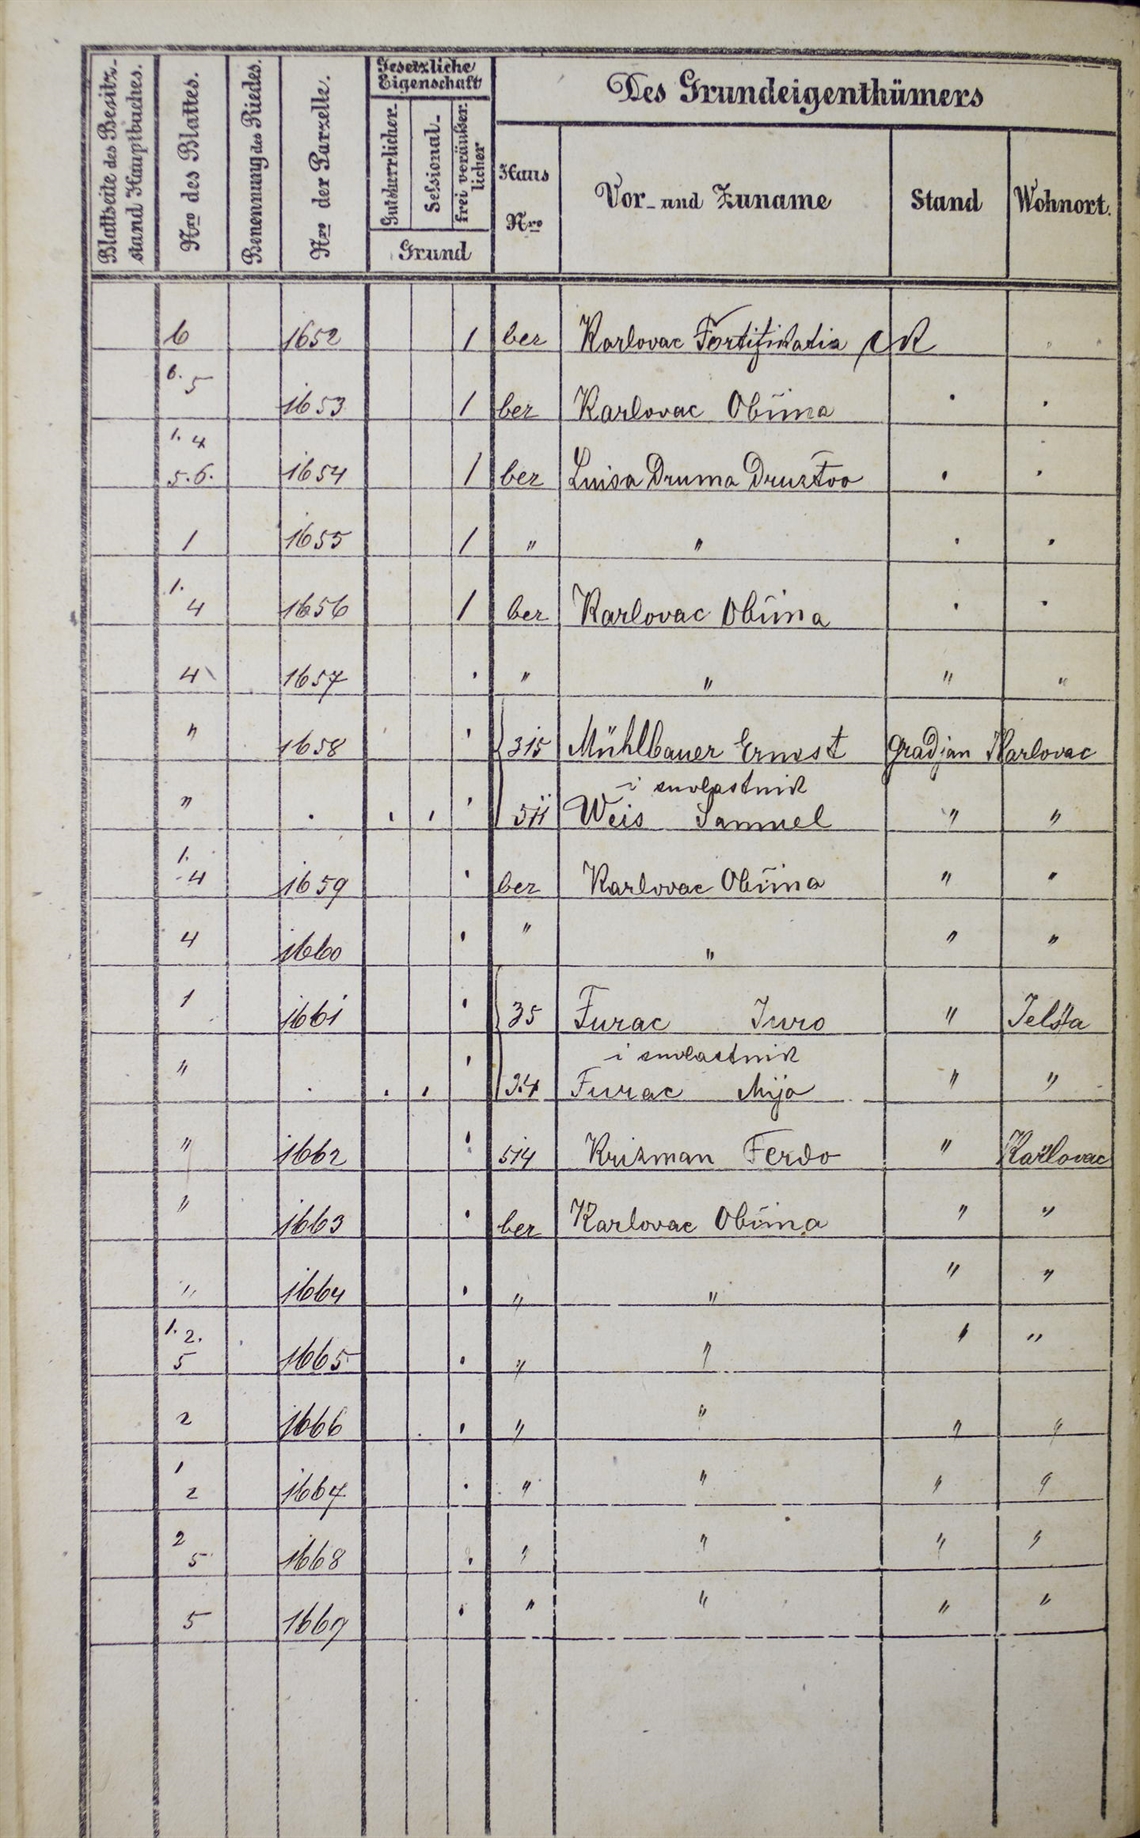 Blattseite des Besitz-
stand Hauptbuches.
Nro des Blattes.
Benennung des Riedes.
Nro der Parzelle.
Gesetzliche
Eigenschaft
Gutsherrlicher-
Sessional-
frei veräußer-
licher
Grund
Des Grundeigenthümers
Haus
Nro
Vor- und Zuname
Stand
Wohnort.
6 1652 1 bez Karlovac Fortifikatia CK " "
6. 5
1653 1 bez Karlovac Obćina . .
1. 4
5.6. 1654 1 bez Luisa Druma Družtvo . .
1 1655 1 " " . .
1.
4 1656 1 bez Karlovac Obćina . .
4 1657 . " " " "
" 1658 ' 315 Mühlbauer Ernest gradjan Karlovac
i suvlastnik
" . . . ' 511 Weis Samuel " "
1.
4 1659 ' bez Karlovac Obćina " "
4 1660 ' " " " "
1 1661 ' 35 Furac Juro " Jelsa
i suvlastnik
" . . . ' 34 Furac Mijo " "
" 1662 ' 514 Krizman Ferdo " Karlovac
" 1663 ' bez Karlovac Obćina " "
" 1664 . " " " "
1. 2.
5 1665 . " " " "
2 1666 . . " " " "
1
2 1667 . " " " "
2
5 1668 . " " " "
5 1669 . " " " "